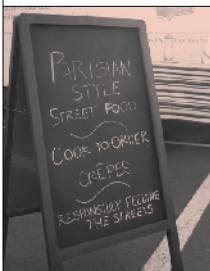 PARISIAN
STYLE
STREET FOOD
COOK TO ORDER
CRÊPES
RESPONSIBLY FEEDING
THE STREETS